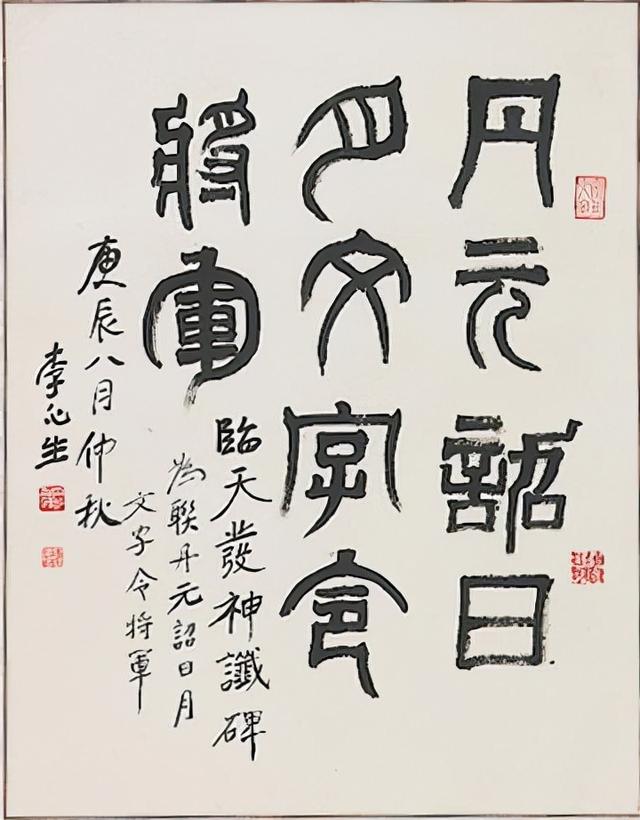 丹元詔日
月文字令
將軍
臨天發神讖碑
為聯丹元詔日月
文字令将軍
庚辰八月仲秋
李心生